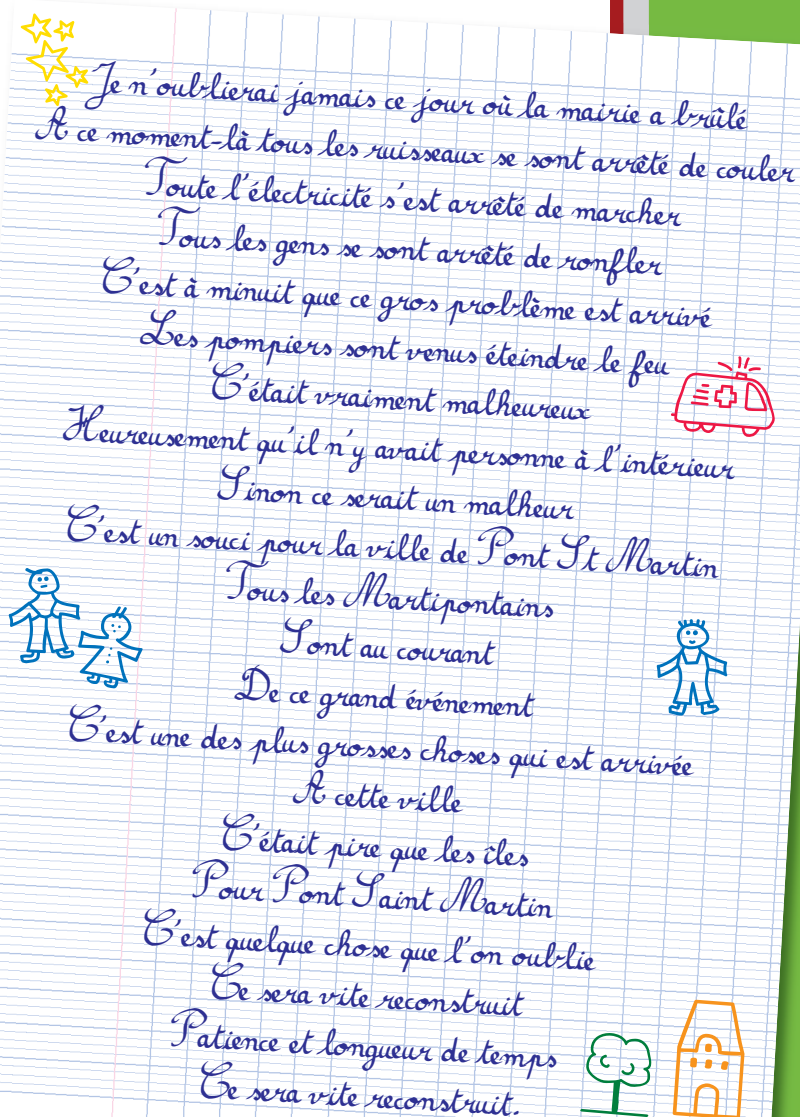 Je n'oublierai jamais ce jour où la mairie a brûlé
A ce moment-là tous les ruisseaux se sont arrêté de couler
Toute l'électricité s'est arrêté de marcher
Tous les gens se sont arrêté de ronfler
C'est à minuit que ce gros problème est arrivé
Les pompiers sont venus éteindre le feu
C'était vraiment malheureux
Heureusement qu'il n'y avait personne à l'intérieur
Sinon ce serait un malheur
C'est un souci pour la ville de Pont St Martin
Tous les Martipontains
Sont au courant
De ce grand événement
C'est une des plus grosses choses qui est arrivée
A cette ville
C'était pire que les îles
Pour Pont Saint Martin
C'est quelque chose que l'on oublie
Ce sera vite reconstruit
Patience et longueur de temps
Ce sera vite reconstruit.